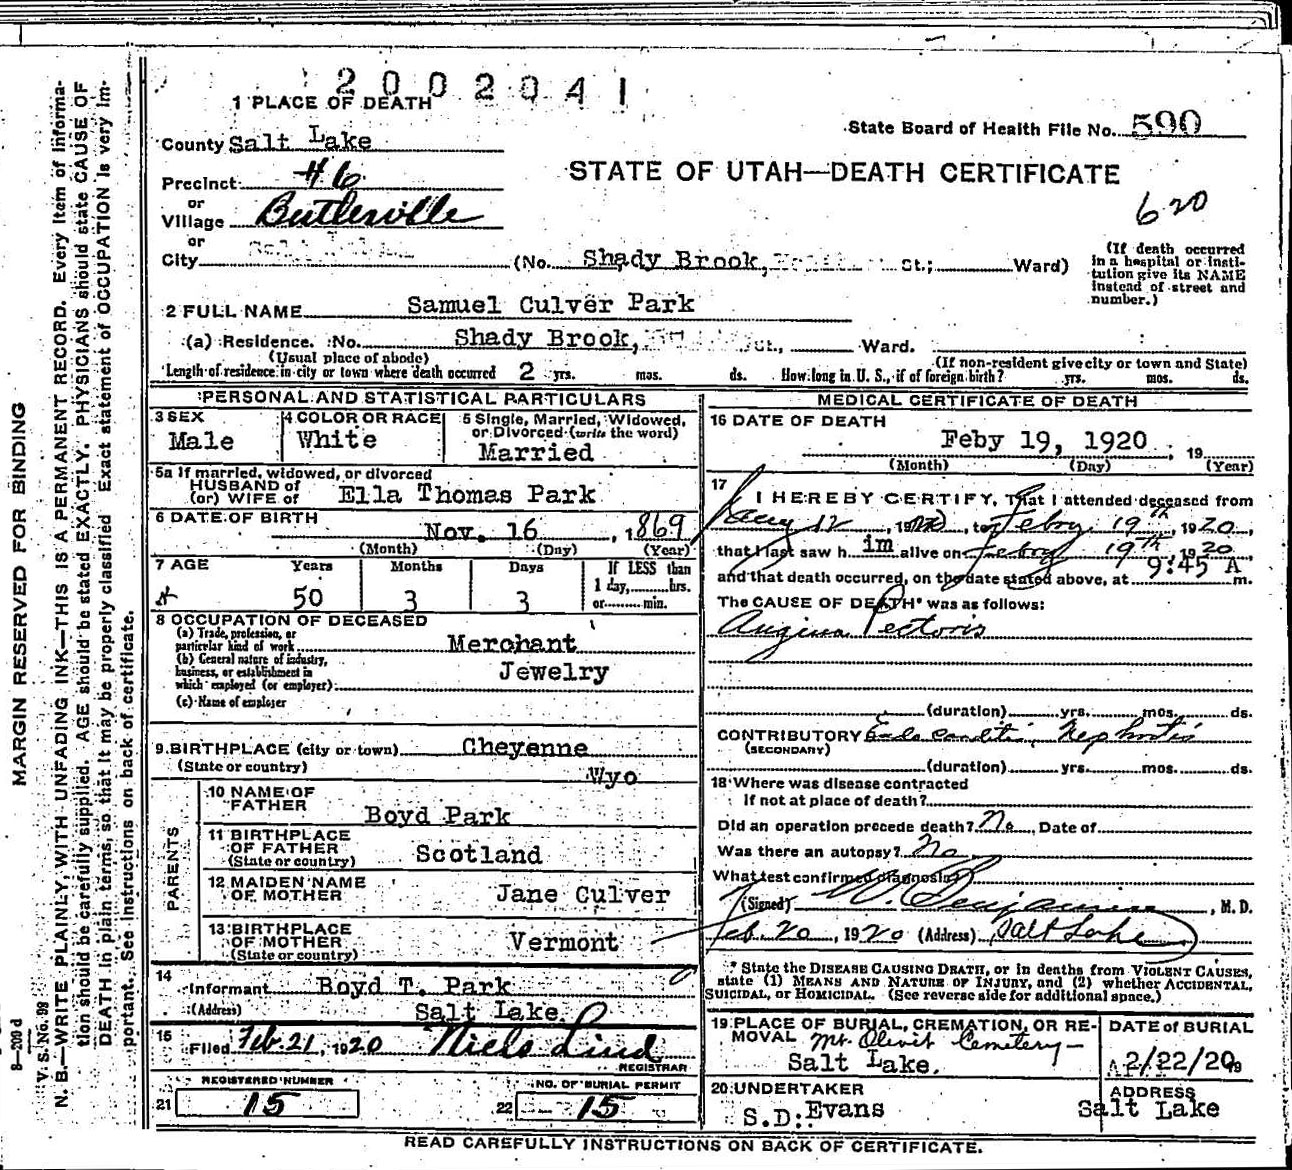 2002041
1 PLACE OF DEATH
State Board of Health File No. 590
County Salt Lake
STATE OF UTAH—DEATH CERTIFICATE
Precinct 46
620
or
Village Butlerville
or
City
(No. Shady Brook, St.; Ward)
(If death occurred
in a hospital or insti-
tution give its NAME
instead of street and
number.)
2 FULL NAME Samuel Culver Park
(a) Residence. No. Shady Brook, St., Ward.
(Usual place of abode)
(If non-resident give city or town and State)
Length of residence in city or town where death occurred 2 yrs. mos. ds. How long in U. S., if of foreign birth? yrs. mos. ds.
PERSONAL AND STATISTICAL PARTICULARS
3 SEX
Male
4 COLOR OR RACE
White
5 Single, Married, Widowed,
or Divorced (write the word)
Married
5a If married, widowed, or divorced
HUSBAND of
(or) WIFE of Ella Thomas Park
6 DATE OF BIRTH
Nov. 16, 1869
(Month) (Day) (Year)
7 AGE Years Months Days If LESS than
1 day, hrs.
or min.
50 3 3
8 OCCUPATION OF DECEASED
(a) Trade, profession, or
particular kind of work Merchant
(b) General nature of industry,
business, or establishment in
which employed (or employer) Jewelry
(c) Name of employer
9 BIRTHPLACE (city or town) Cheyenne
(State or country) Wyo
PARENTS
10 NAME OF
FATHER
Boyd Park
11 BIRTHPLACE
OF FATHER
(State or country) Scotland
12 MAIDEN NAME
OF MOTHER Jane Culver
13 BIRTHPLACE
OF MOTHER
(State or country) Vermont
14
Informant Boyd T. Park
(Address) Salt Lake.
15
Filed Feb. 21, 1920 Niels Lind
REGISTRAR
REGISTERED NUMBER
21 15
NO. OF BURIAL PERMIT
22 15
MEDICAL CERTIFICATE OF DEATH
16 DATE OF DEATH
Feby 19, 1920, 19
(Month) (Day) (Year)
17
I HEREBY CERTIFY, That I attended deceased from
Aug 12, 19, to Febry 19th, 1920,
that I last saw him alive on Febry 19th, 1920
and that death occurred, on the date stated above, at 9:45 A m.
The CAUSE OF DEATH* was as follows:
Angina Pectoris
(duration) yrs. mos. ds.
CONTRIBUTORY Endocarditis, Nephritis
(SECONDARY)
(duration) yrs. mos. ds.
18 Where was disease contracted
If not at place of death?
Did an operation precede death? No, Date of
Was there an autopsy? No
What test confirmed diagnosis?
(Signed) W. Benjamin, M. D.
Feb. 20, 1920 (Address) Salt Lake
* State the DISEASE CAUSING DEATH, or in deaths from VIOLENT CAUSES,
state (1) MEANS AND NATURE OF INJURY, and (2) whether ACCIDENTAL,
SUICIDAL, or HOMICIDAL. (See reverse side for additional space.)
19 PLACE OF BURIAL, CREMATION, OR RE-
MOVAL Mt. Olivit Cemetery—
Salt Lake.
DATE of BURIAL
2/22/20, 19
20 UNDERTAKER
S.D. Evans
ADDRESS
Salt Lake
READ CAREFULLY INSTRUCTIONS ON BACK OF CERTIFICATE.
MARGIN RESERVED FOR BINDING
8—200 d
V. S. No. 99
N. B.—WRITE PLAINLY, WITH UNFADING INK—THIS IS A PERMANENT RECORD. Every item of informa-
tion should be carefully supplied. AGE should be stated EXACTLY. PHYSICIANS should state CAUSE OF
DEATH in plain terms, so that it may be properly classified. Exact statement of OCCUPATION is very im-
portant. See instructions on back of certificate.